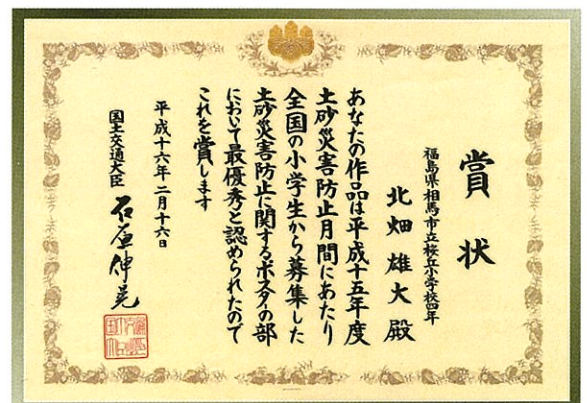 賞状
福島県相馬市立桜丘小学校四年
北畑雄大殿
あなたの作品は平成十五年度
土砂災害防止月間にあたり
全国の小学生から募集した
土砂災害防止に関するポスターの部
において最優秀と認められたので
これを賞します
平成十六年二月十六日
国土交通大臣 石原伸晃